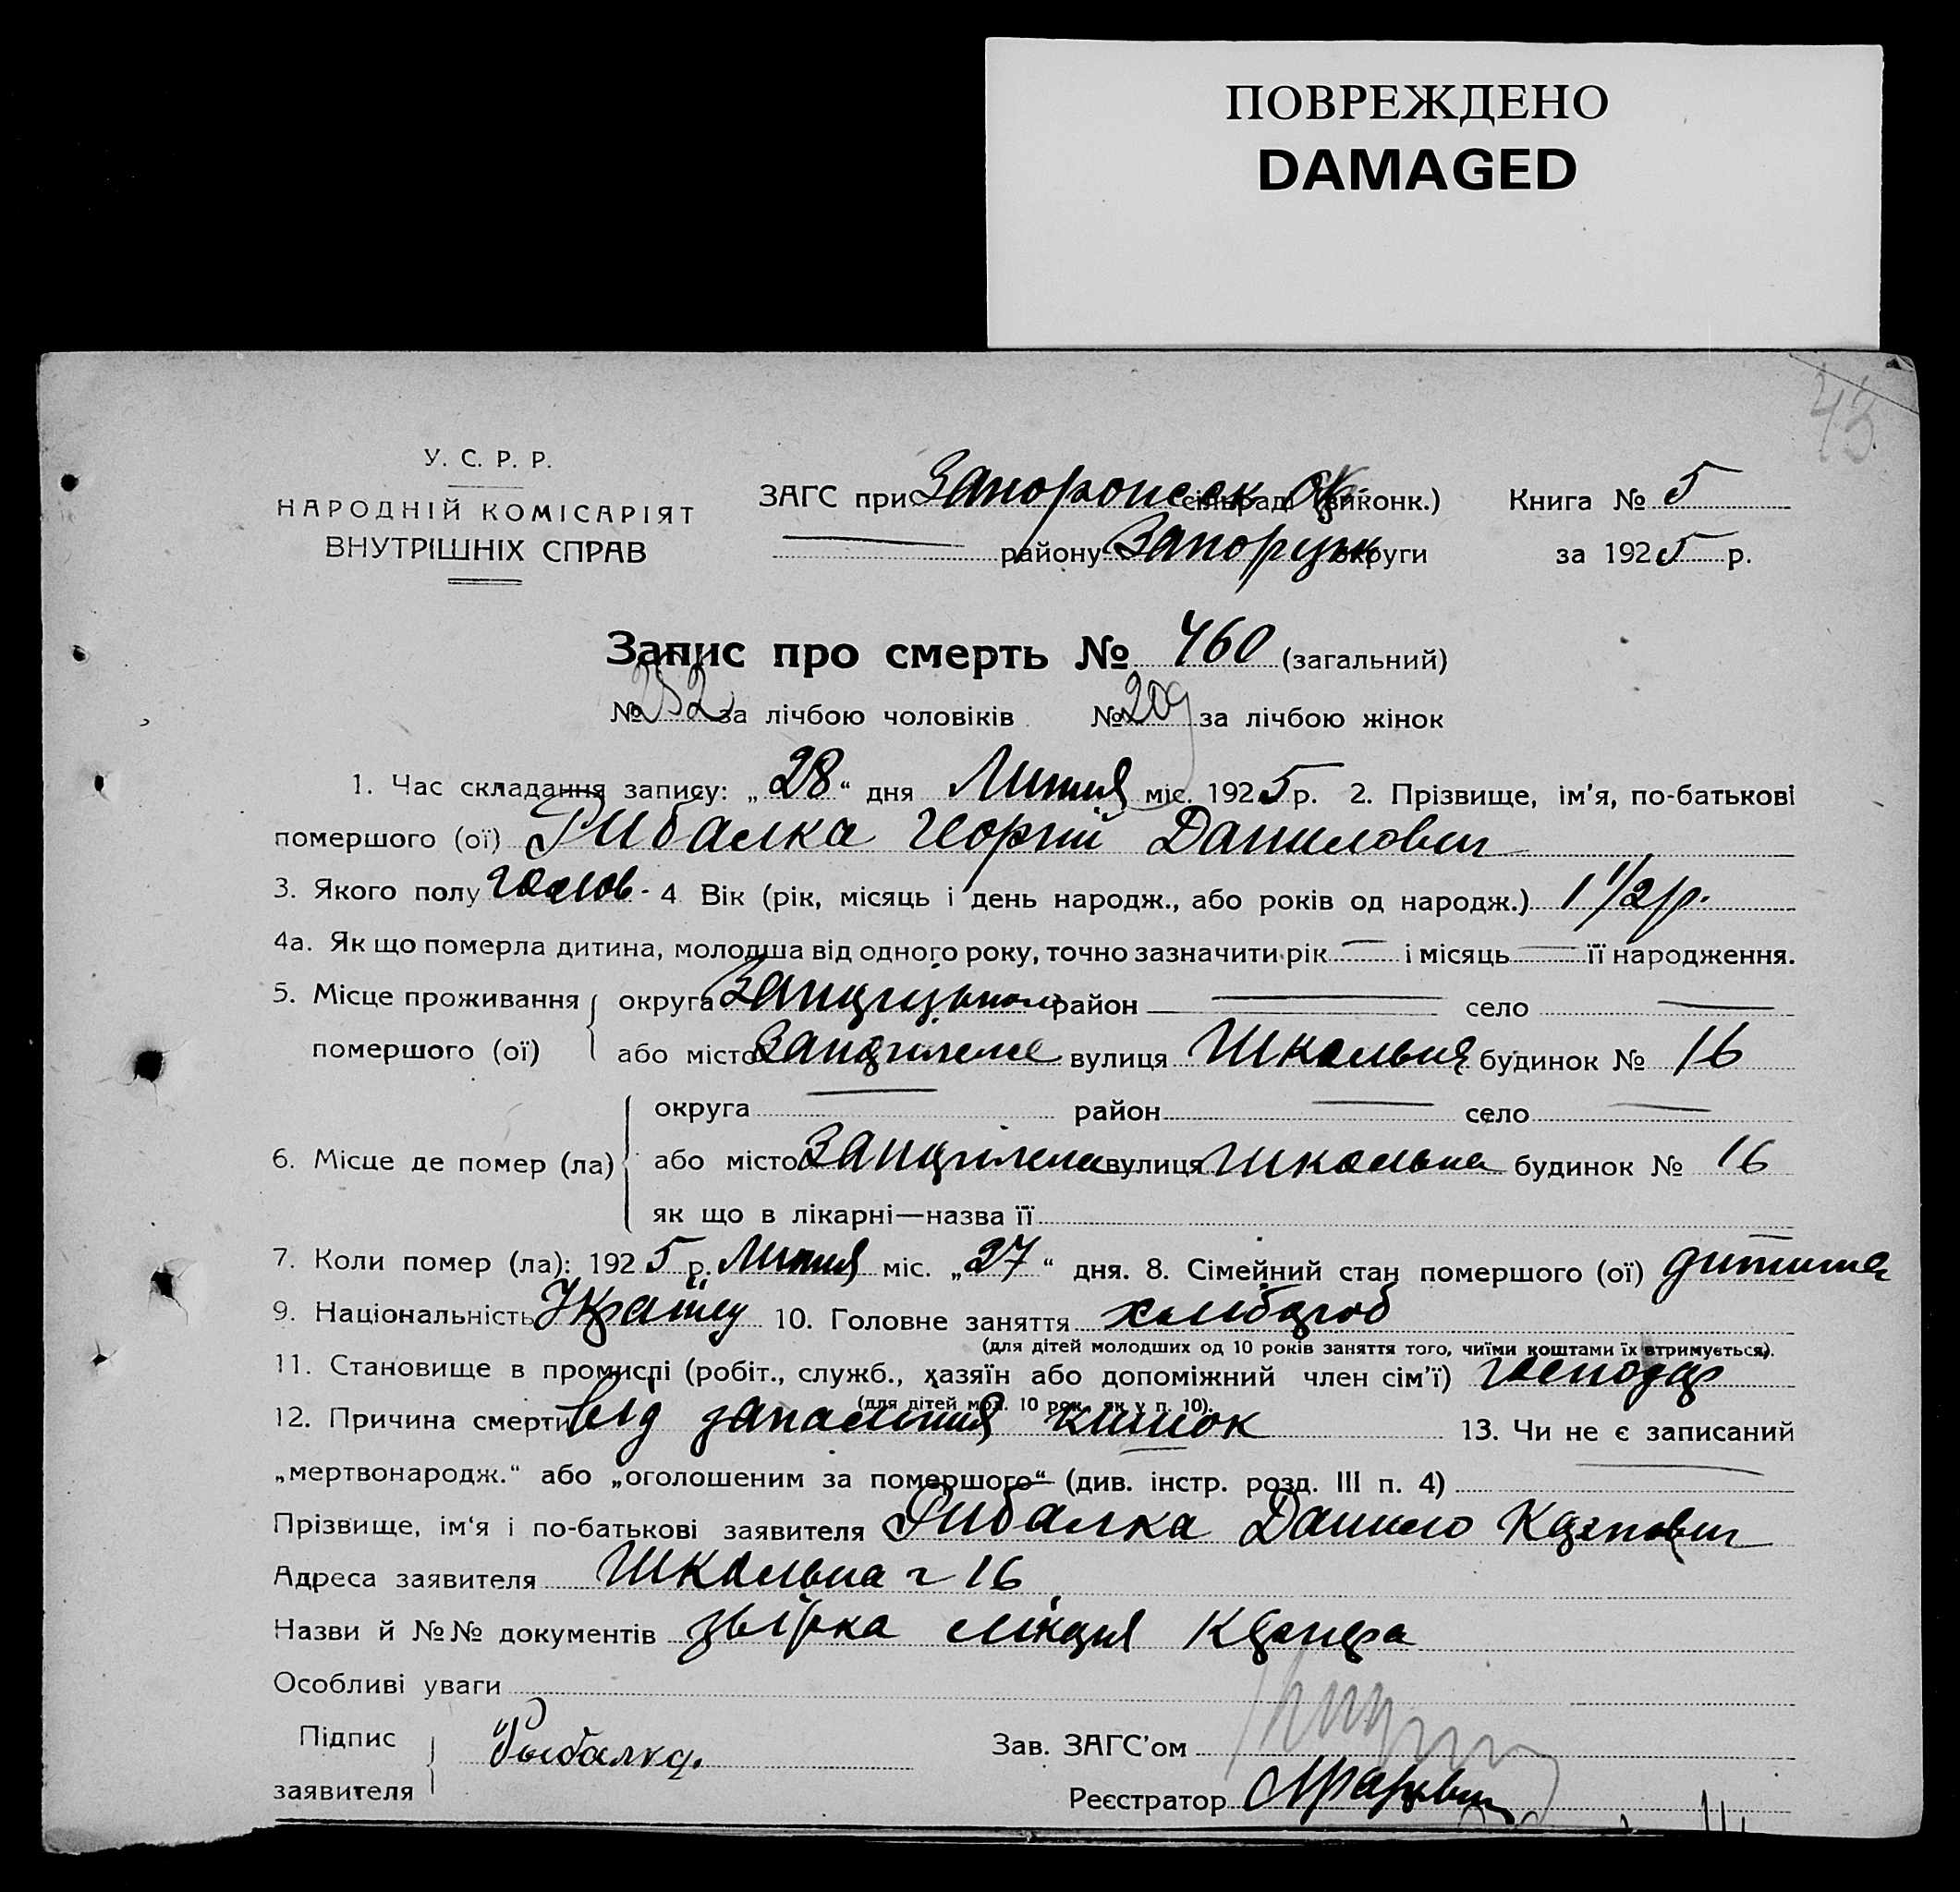 ПОВРЕЖДЕНО
DAMAGED
43
У. С. Р. Р.
НАРОДНІЙ КОМІСАРІЯТ
ВНУТРІШНІХ СПРАВ
ЗАГС при сільради (виконк.)
району округи
Книга № 5
за 1925 р.
Запис про смерть № 460 (загальний)
№ 252 за лічбою чоловіків № 209 за лічбою жінок
1. Час складання запису: „28“ дня Липня міс. 1925 р. 2. Прізвище, ім'я, по-батькові
помершого (ої) Рибалка Георгій Данилович
3. Якого полу чолов- 4 Вік (рік, місяць і день народж., або років од народж.) 1 1/2 р.
4а. Як що померла дитина, молодша від одного року, точно зазначити рік — і місяць — її народження.
5. Місце проживання помершого (ої) округа район — село —
або місто вулиця Школьна будинок № 16
6. Місце де помер (ла) округа — район — село —
або місто вулиця Школьна будинок № 16
як що в лікарні—назва її
7. Коли помер (ла): 1925 р. Липня міс. „27“ дня. 8. Сімейний стан помершого (ої) дитина
9. Національність 10. Головне заняття хлібороб
(для дітей молодших од 10 років заняття того, чиїми коштами їх втримується).
11. Становище в промислі (робіт., служб., хазяїн або допоміжний член сім'ї) господар
(для дітей мол. 10 рок. як у п. 10).
12. Причина смерти від запалення кишок 13. Чи не є записаний
„мертвонародж.“ або „оголошеним за помершого“ (див. інстр. розд. III п. 4) —
Прізвище, ім'я і по-батькові заявителя Рибалка Данило Карпович
Адреса заявителя Школьна 16
Назви й №№ документів
Особливі уваги
Підпис заявителя Рыбалка.
Зав. ЗАГС'ом
Реєстратор